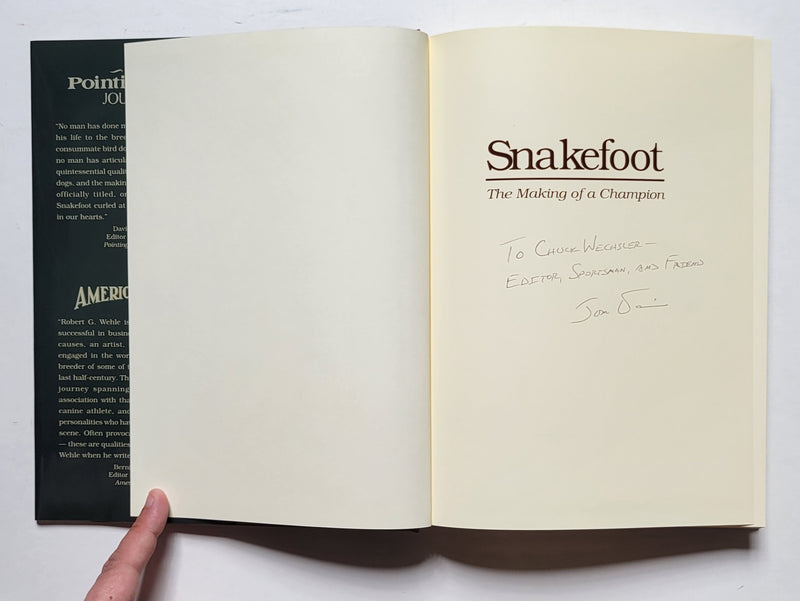 Pointi
JOU
"No man has done m
his life to the bree
consummate bird do
no man has articula
quintessential quali
dogs, and the makin
officially titled, or
Snakefoot curled at
in our hearts."
Davi
Editor
Pointing
AMERIC
"Robert G. Wehle is
successful in busin
causes, an artist,
engaged in the wor
breeder of some of t
last half-century. Th
journey spanning
association with tha
canine athlete, and
personalities who hav
scene. Often provoc
— these are qualities
Wehle when he write
Berna
Editor
Ame
Snakefoot
The Making of a Champion
To Chuck Wechsler —
Editor, Sportsman, and Friend